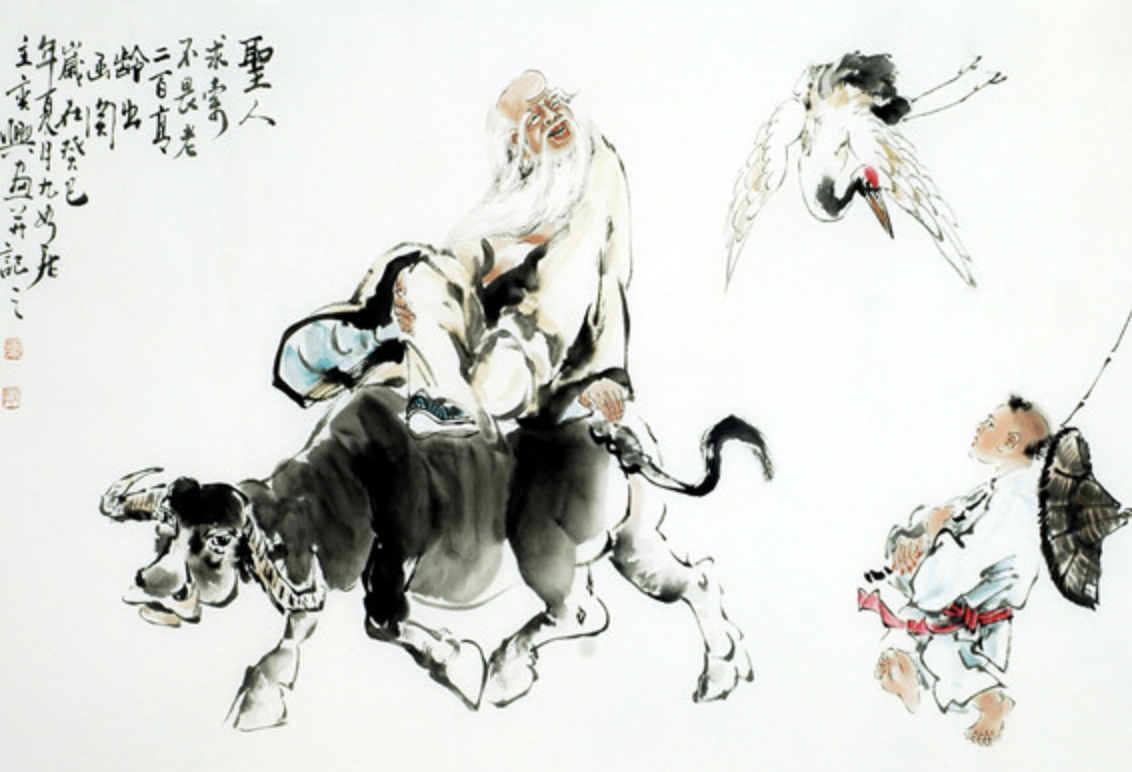 聖人
求索
不畏老
二百高
齡出
函
歲在癸巳
年夏月九如居
主興画并記之